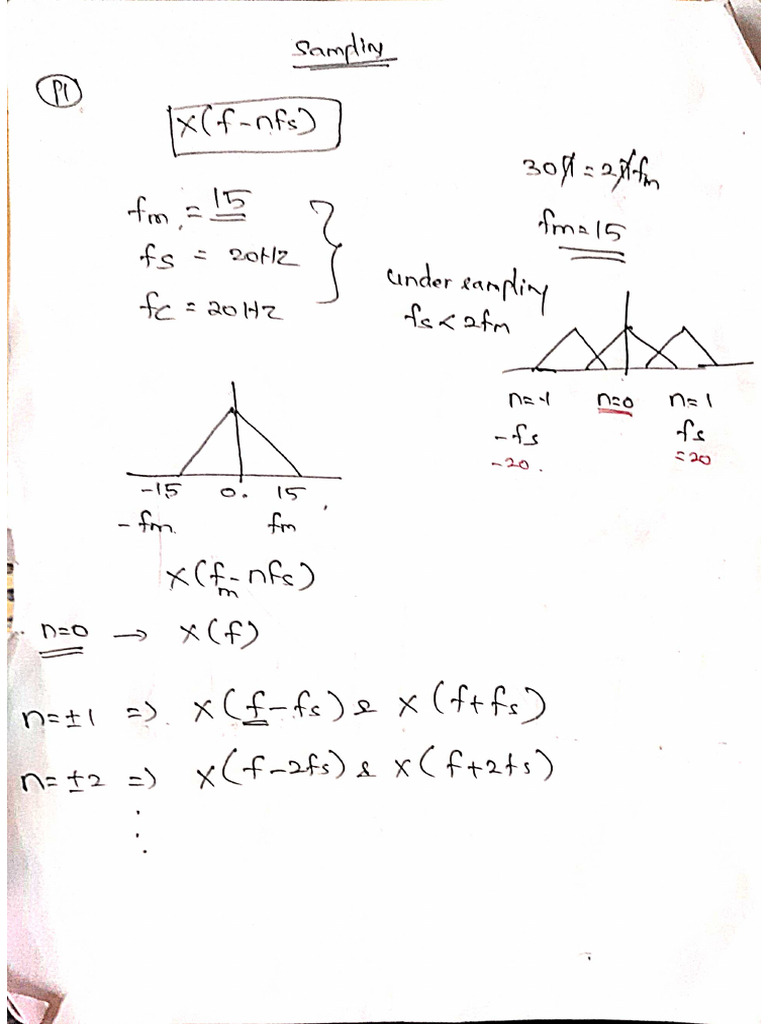 Sampling
P1
X(f-nfs)
fm = 15
fs = 20HZ
fc = 20HZ
30π = 2πfm
fm=15
under sampling
fs < 2fm
n=-1 n=0 n=1
-fs fs
-20. =20
-15 0. 15
-fm. fm
X(fm-nfs)
n=0 → X(f)
n=±1 => X(f-fs) & X(f+fs)
n=±2 => X(f-2fs) & X(f+2fs)
⋮